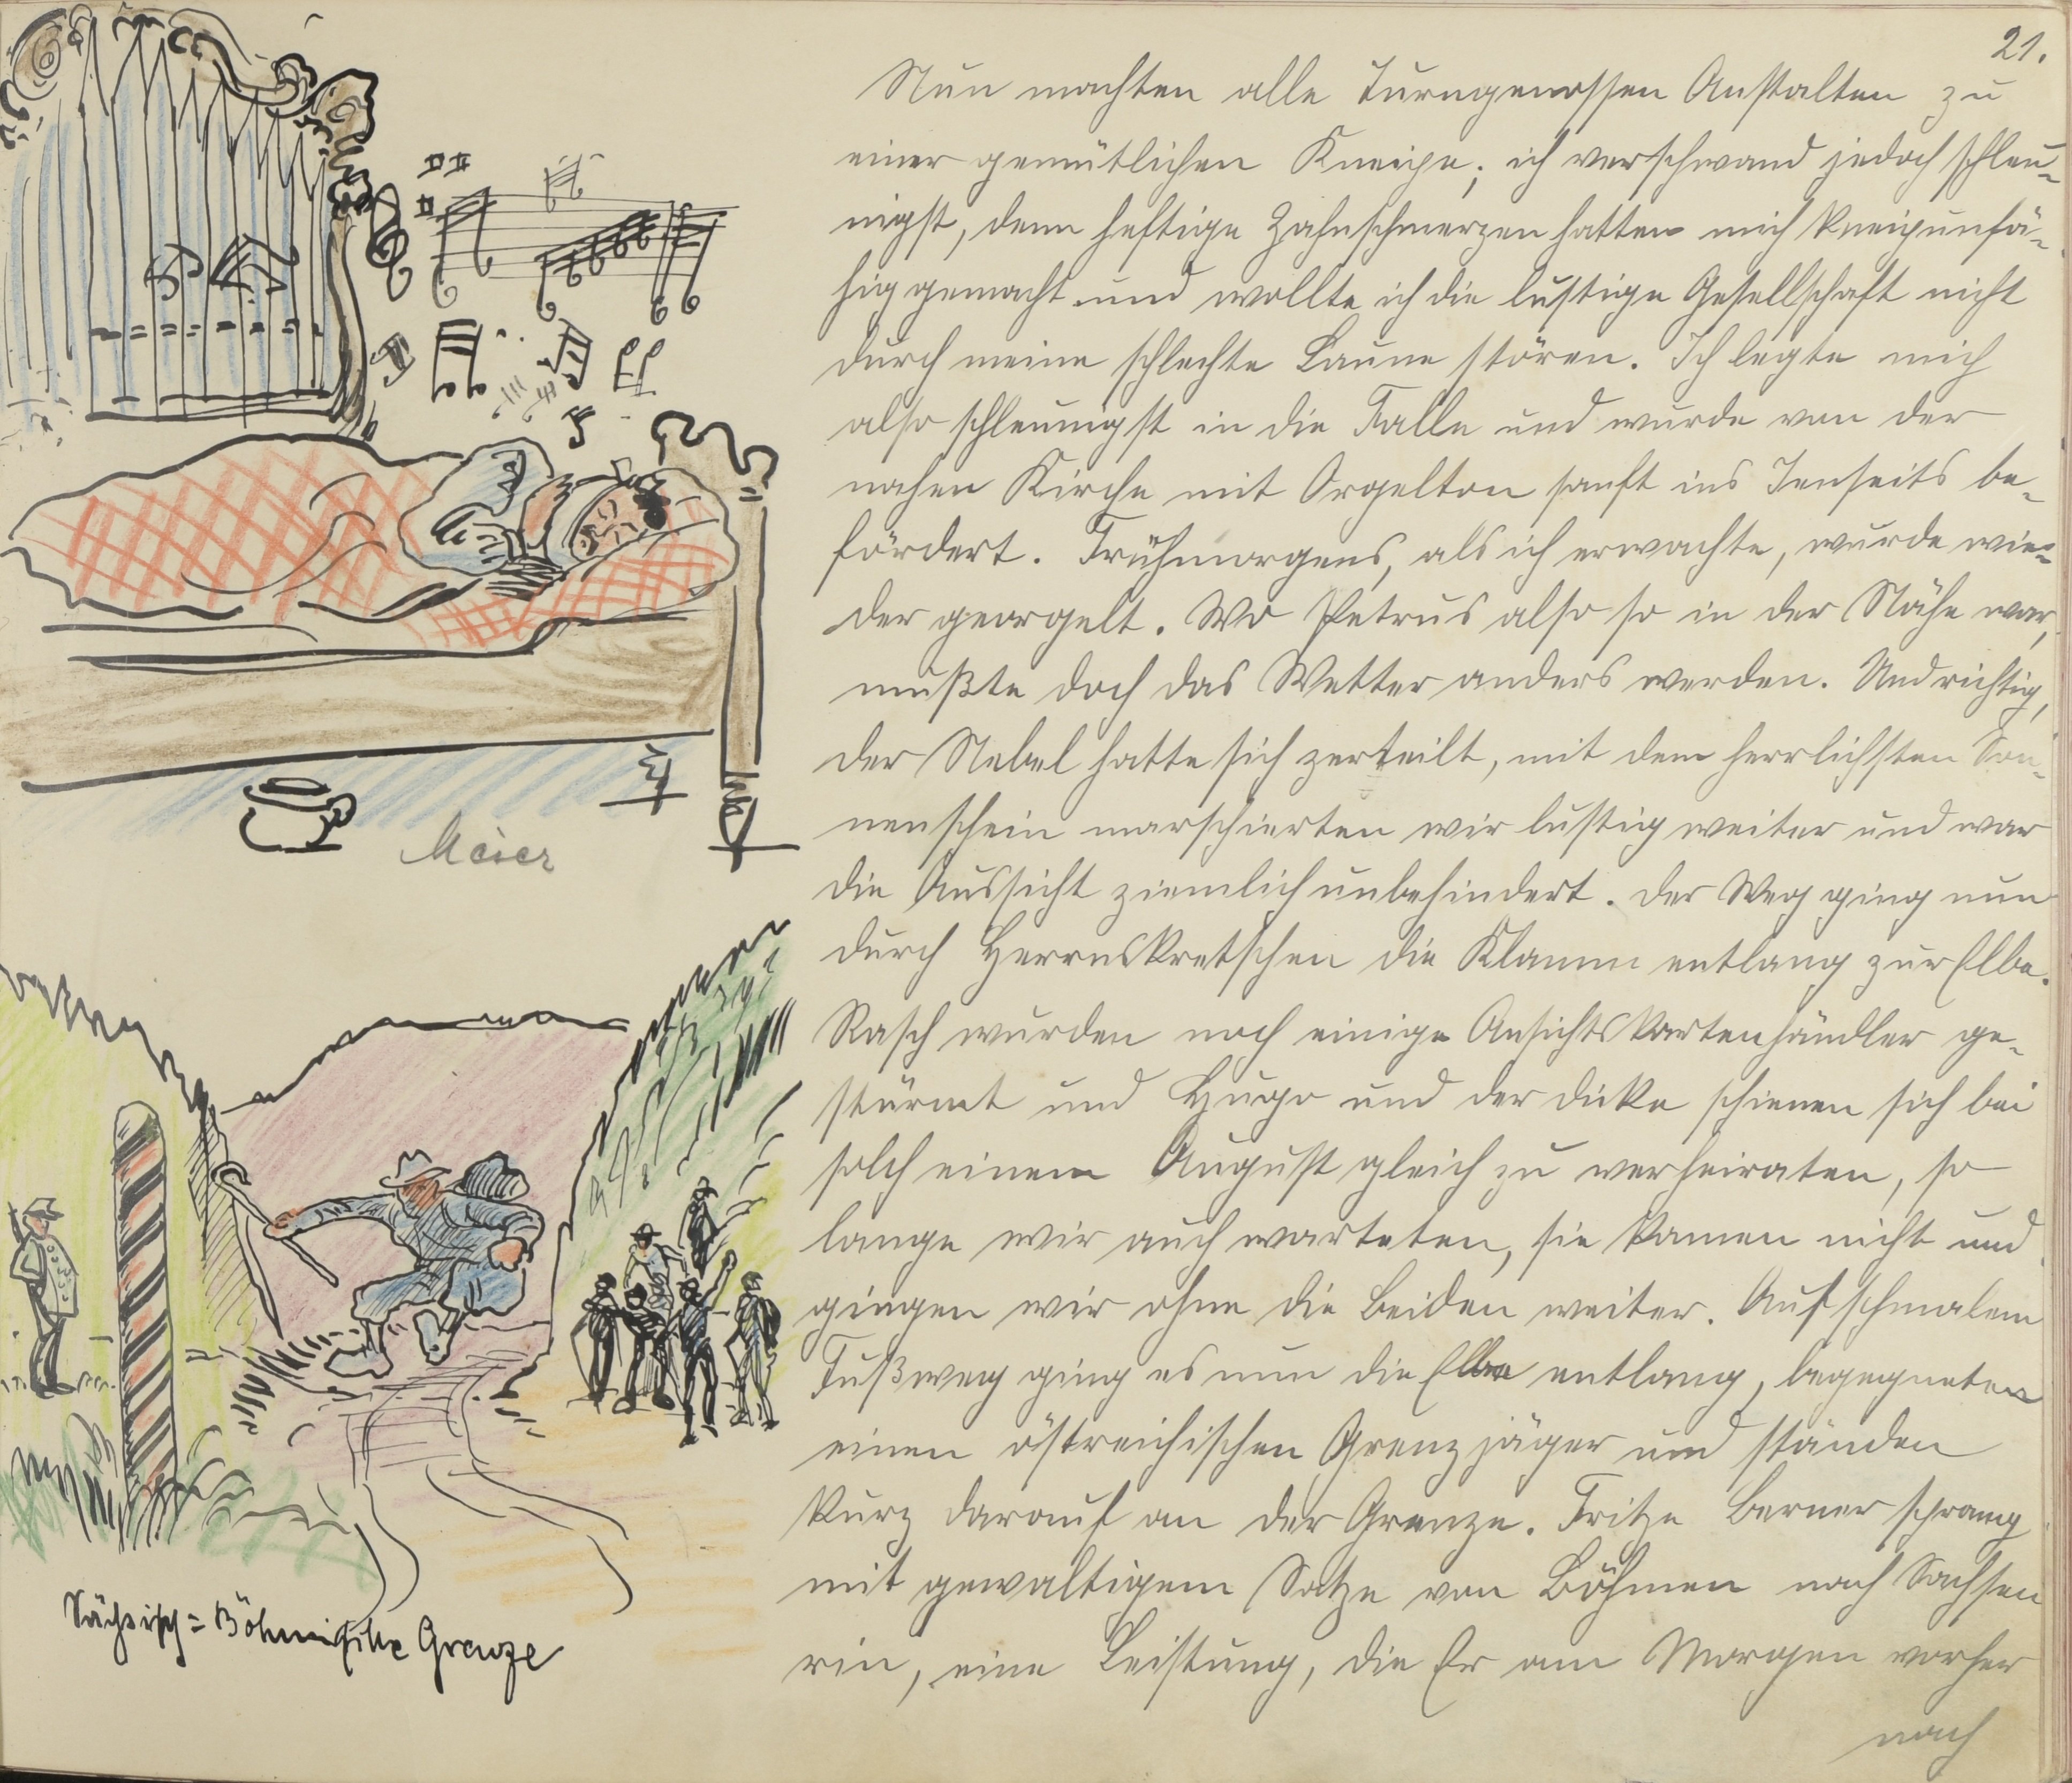 21.
Nun machten alle Turngenossen Anstalten zu
einer gemütlichen Kneipe; ich verschwand jedoch schleu-
nigst, denn heftige Zahnschmerzen hatten mich kneipunfä-
hig gemacht und wollte ich die lustige Gesellschaft nicht
durch meine schlechte Laune stören. Ich legte mich
also schleunigst in die Falle und wurde von der
nahen Kirche mit Orgelton sanft ins Jenseits be-
fördert. Frühmorgens, als ich erwachte, wurde wie-
der georgelt. Wo Petrus also so in der Nähe war,
mußte doch das Wetter anders werden. Und richtig,
der Nebel hatte sich zerteilt, mit dem herrlichsten Son-
nenschein marschierten wir lustig weiter und war
die Aussicht ziemlich unbehindert. Der Weg ging nun
durch Herrnskretschen die Klamm entlang zur Elbe.
Rasch wurden noch einige Ansichtskartenhändler ge-
stürmt und Hugo und der Dicke schienen sich bei
solch einem August gleich zu verheiraten, so
lange wir auch warteten, sie kamen nicht und
gingen wir ohne die Beiden weiter. Auf schmalem
Fußweg ging es nun die Elbe entlang, begegneten
einen östreichischen Grenzjäger und standen
kurz darauf an der Grenze. Fritze Berner sprang
mit gewaltigem Satze von Böhmen nach Sachsen
rin, eine Leistung, die Er am Morgen vorher
nach
Meier
Sächsisch=Böhmische Grenze